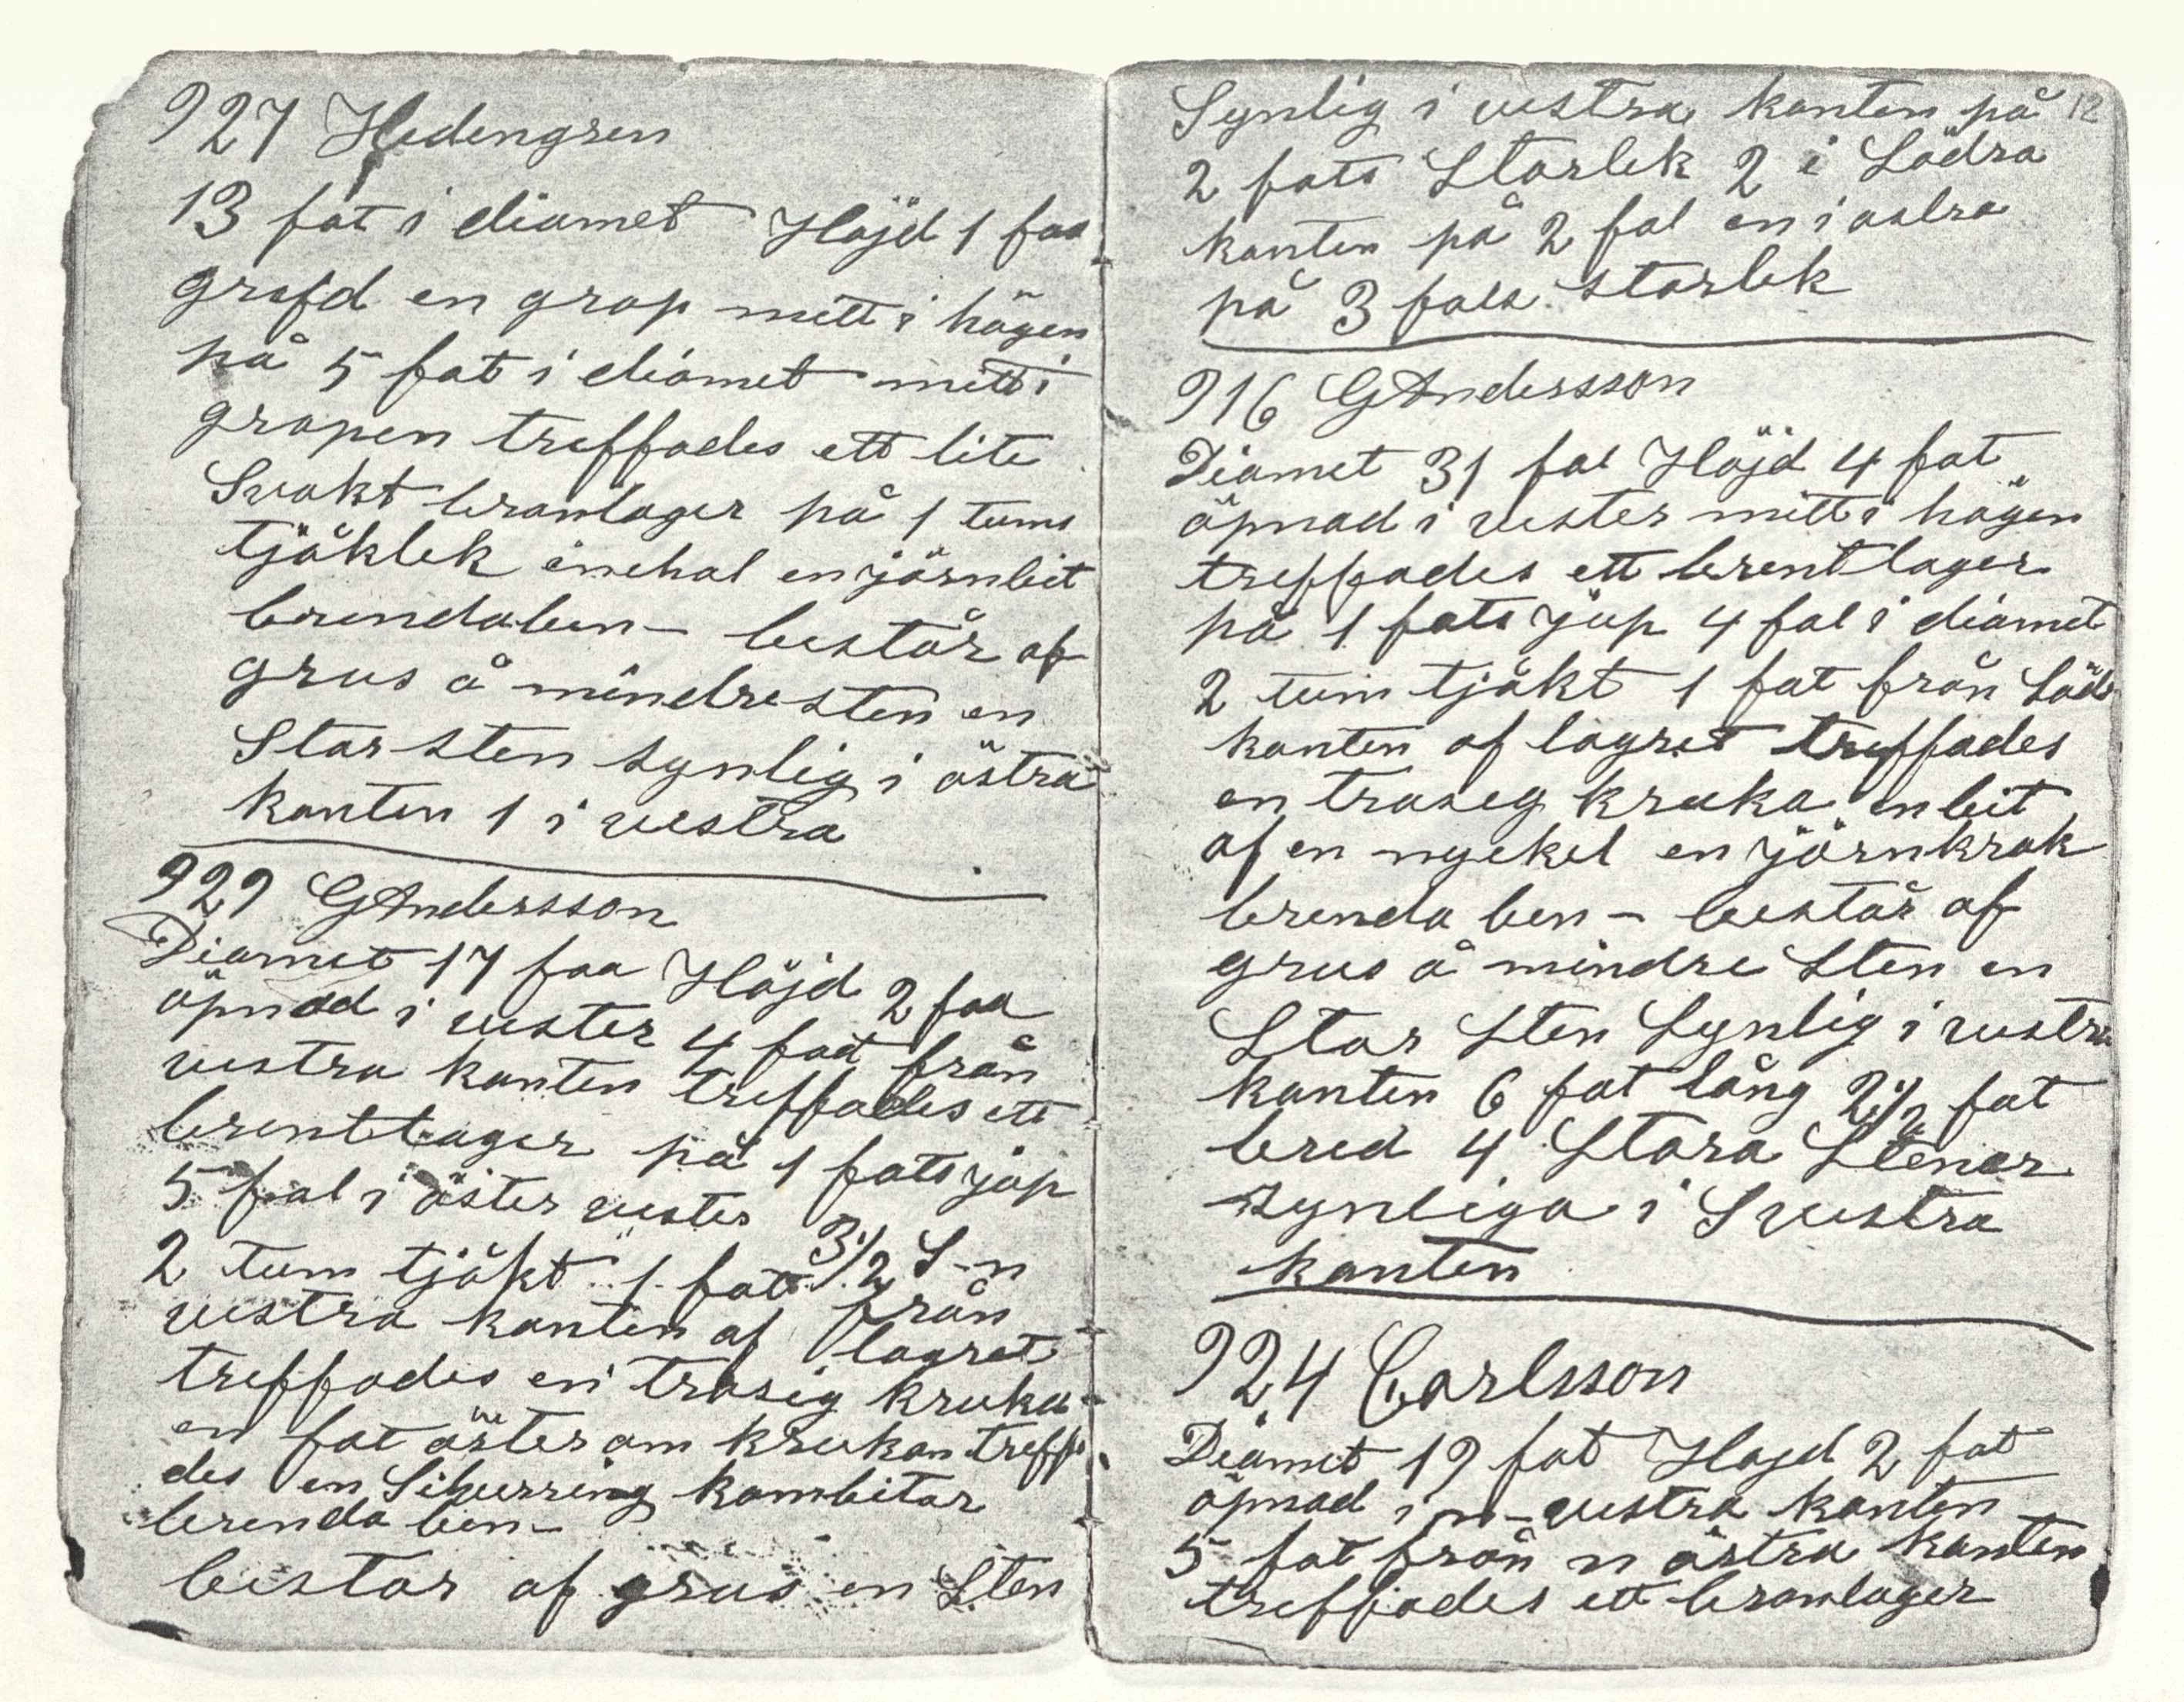 927 Hedengren
13 fot i diamet Höjd 1 fot
grafd en grop mitt i högen
på 5 fot i diamet mitt i
gropen treffades ett lite
Svakt branlager på 1 tums
tjåklek inehol en järnbit
brendaben – består af
grus å mindre sten en
Stor sten synlig i östra
kanten 1 i vestra
929 GAndersson
Diamet 17 fot Höjd 2 fot
öpnad i vester 4 fot från
vestra kanten treffades ett
brentlager på 1 fots jup
5 fot i öster vester 3 1/2 S-n
2 tum tjåkt 1 fot från
vestra kanten af lagret
treffades en trasig kruka
en fot öster om krukan treffa
des en Silverring kambitar
brenda ben –
bestar af grus en Sten
Synlig i vestra kanten på 12
2 fots Storlek 2 i Södra
kanten på 2 fot en i östra
på 3 fots storlek
916 GAndersson
Diamet 31 fot Höjd 4 fot
öpnad i vester mitt i högen
treffades ett brentlager
på 1 fots jup 4 fot i diamet
2 tum tjåkt 1 fot från Söd
kanten af lagret treffades
en trasig kruka en bit
af en nyckel en järnkrok
brenda ben – består af
grus å mindre Sten en
Stor Sten Synlig i vestra
kanten 6 fot lång 2 1/2 fot
bred 4 Stora Stenar
synliga i S vestra
kanten
924 Carlsson
Diamet 19 fot Hojd 2 fot
öpnad i n – vestra kanten
5 fot från n östra kanten
treffades ett branlager